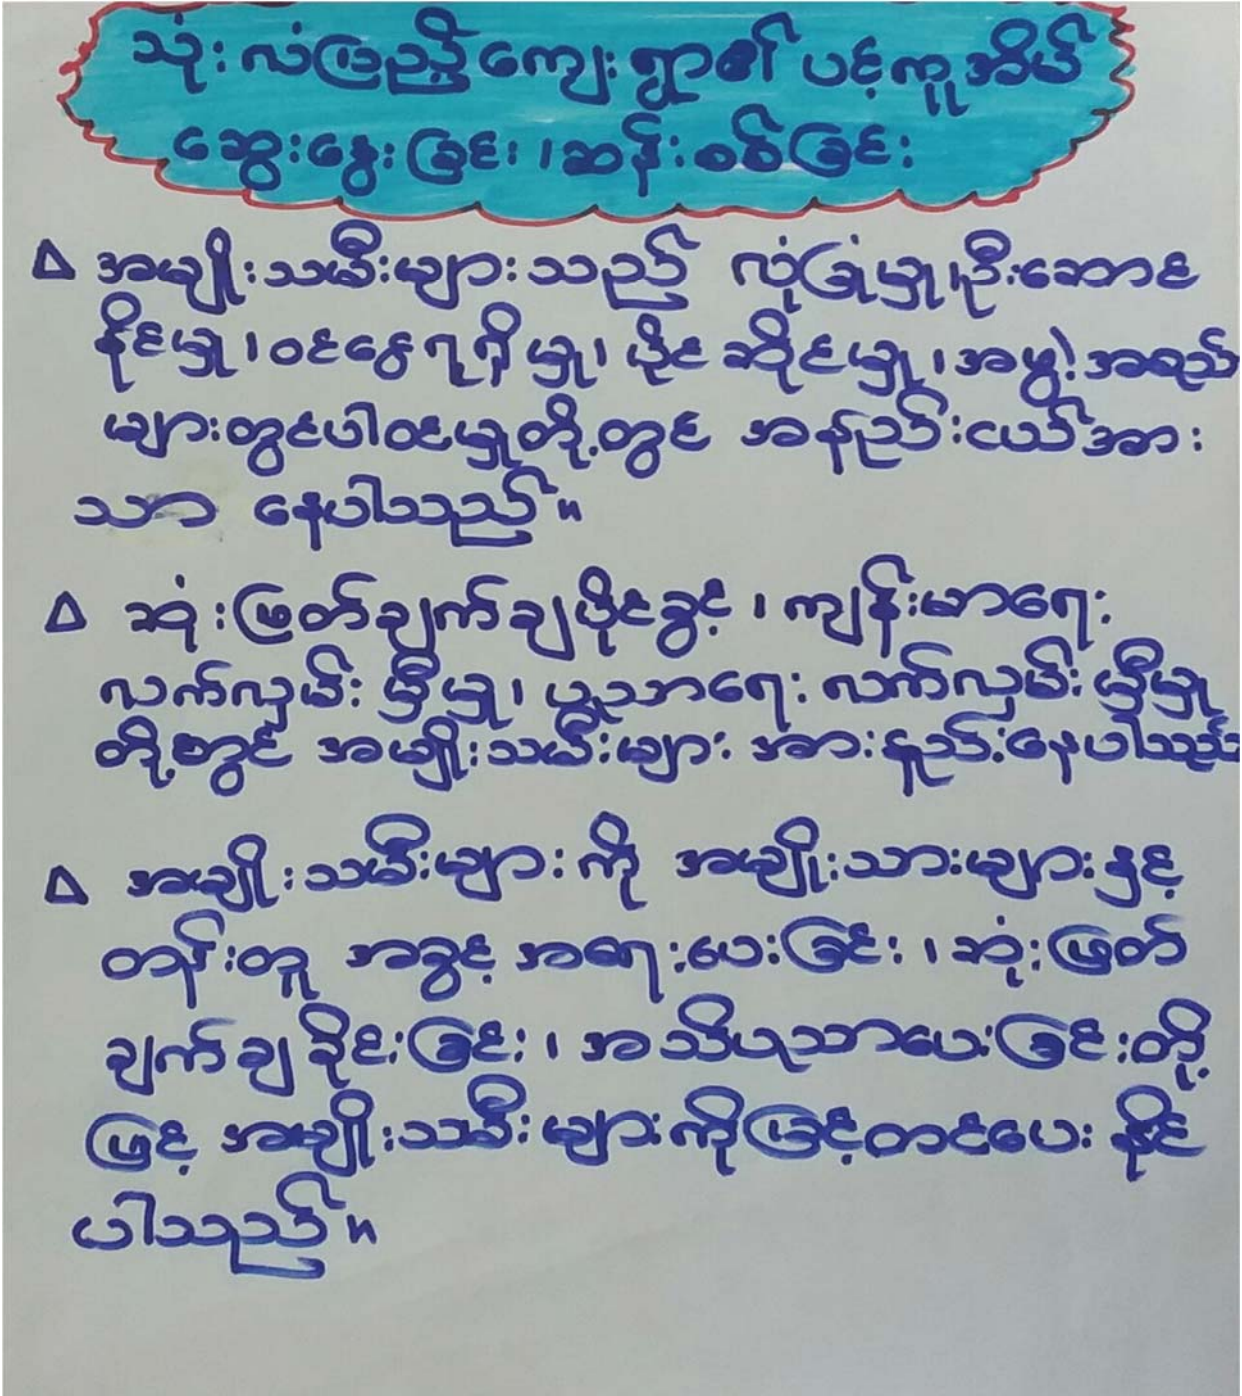 သုံးလံပြည့်ကျေးရွာ၏ ပင့်ကူအိမ်
ဆွေးနွေးခြင်း၊ဆန်းစစ်ခြင်း
Δ အမျိုးသမီးများသည် လုံခြုံမှု၊ဦးဆောင်
နိုင်မှု၊ဝင်ငွေရရှိမှု၊ ပိုင်ဆိုင်မှု၊အဖွဲ့အစည်း
များတွင်ပါဝင်မှုတို့တွင် အနည်းငယ်အား
သာ နေပါသည်။
Δ ဆုံးဖြတ်ချက်ချပိုင်ခွင့်၊ကျန်းမာရေး
လက်လှမ်းမှီမှု၊ ပညာရေး လက်လှမ်းမှီမှု
တို့တွင် အမျိုးသမီးများ အားနည်းနေပါသည်
Δ အမျိုးသမီးများကို အမျိုးသားများနှင့်
တန်းတူ အခွင့်အရေးပေးခြင်း၊ဆုံးဖြတ်
ချက်ချခိုင်းခြင်း၊အသိပညာပေးခြင်းတို့
ဖြင့် အမျိုးသမီးများကိုမြှင့်တင်ပေးနိုင်
ပါသည်။